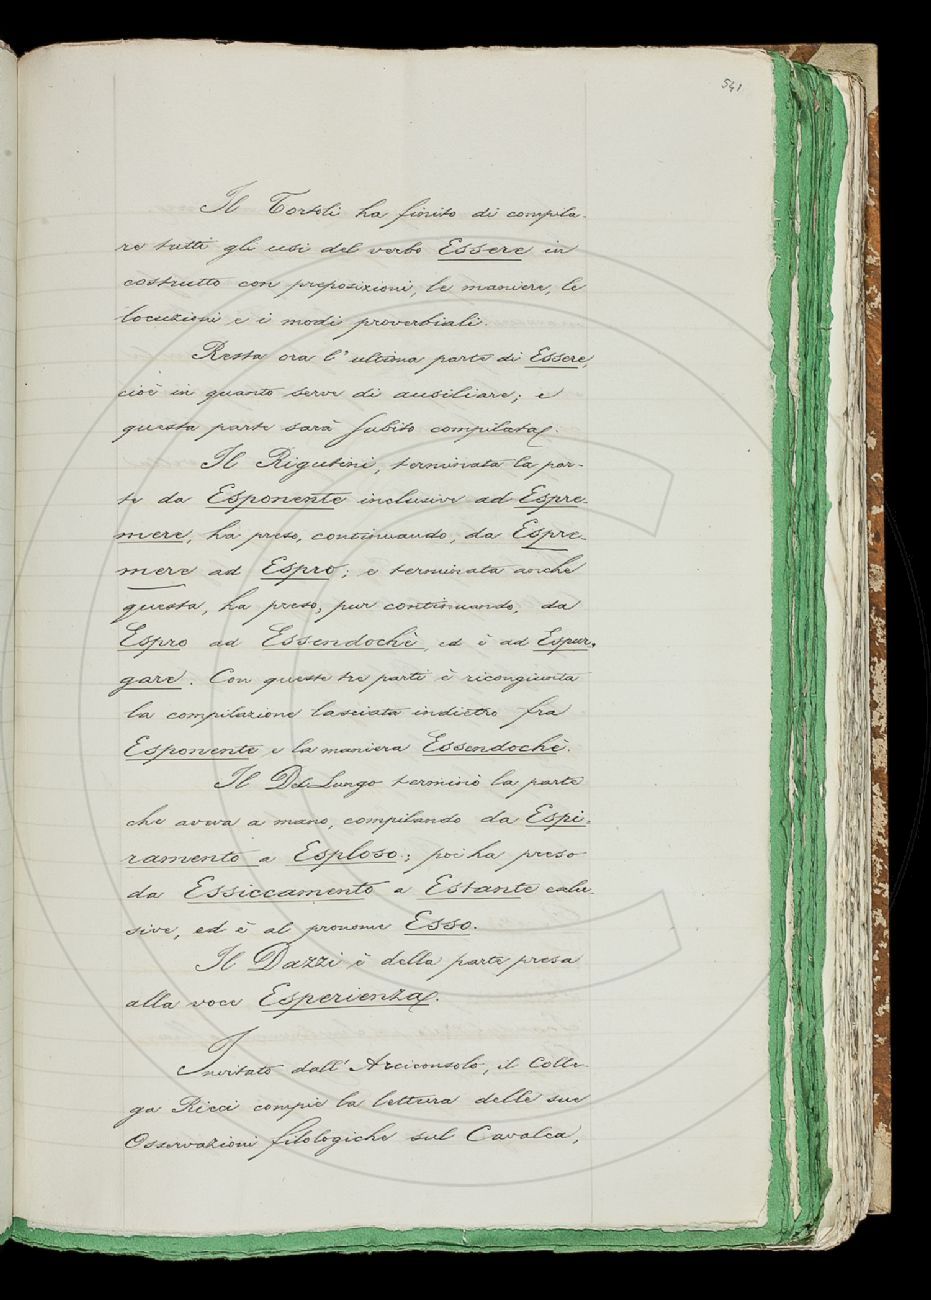 541
Il Tortoli ha finito di compila-
re tutti gli usi del verbo Essere in
costrutto con preposizioni, le maniere, le
locuzioni e i modi proverbiali.
Resta ora l'ultima parte di Essere,
cioè in quanto serve di ausiliare; e
questa parte sarà subito compilata.
Il Rigutini, terminata la par-
te da Esponente inclusive ad Espre-
mere, ha preso, continuando, da Espre-
mere ad Espro; e terminata anche
questa, ha preso, pur continuando, da
Espro ad Essendochè, ed è ad Espur-
gare. Con queste tre parti è ricongiunta
la compilazione lasciata indietro fra
Esponente e la maniera Essendochè.
Il Del Lungo terminò la parte
che aveva a mano, compilando da Espi-
ramento a Esploso; poi ha preso
da Essiccamento a Estante esclu-
sive, ed è al pronome Esso.
Il Dazzi è della parte presa
alla voce Esperienza.
Invitato dall'Arciconsolo, il Colle-
ga Ricci compie la lettura delle sue
Osservazioni filologiche sul Cavalca,